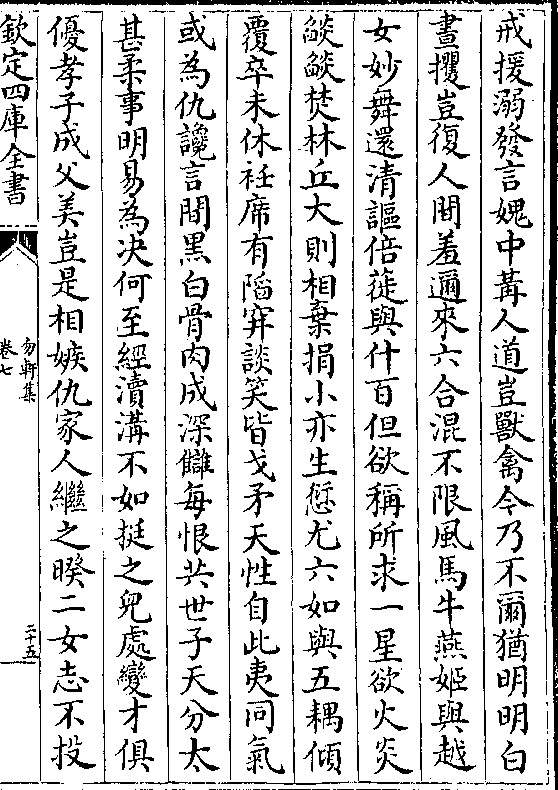 戒援溺發言媿中冓人道豈獸禽今乃不爾猶明明白
晝攫豈復人間羞邇來六合混不限風馬牛燕姬與越
女妙舞還清謳倍蓰與什百但欲稱所求一星欲火炎
燄燄焚林丘大則相棄捐小亦生愆尤六如與五耦傾
覆卒未休衽席有陷穽談笑皆戈矛天性自此夷同氣
或為仇讒言間黑白骨肉成深讎每恨共世子天分太
甚柔事明易為决何至經瀆溝不如挺之兒處變才俱
優孝子成父美豈是相嫉仇家人繼之睽二女志不投
欽定四庫全書
勿軒集
卷七
二十五